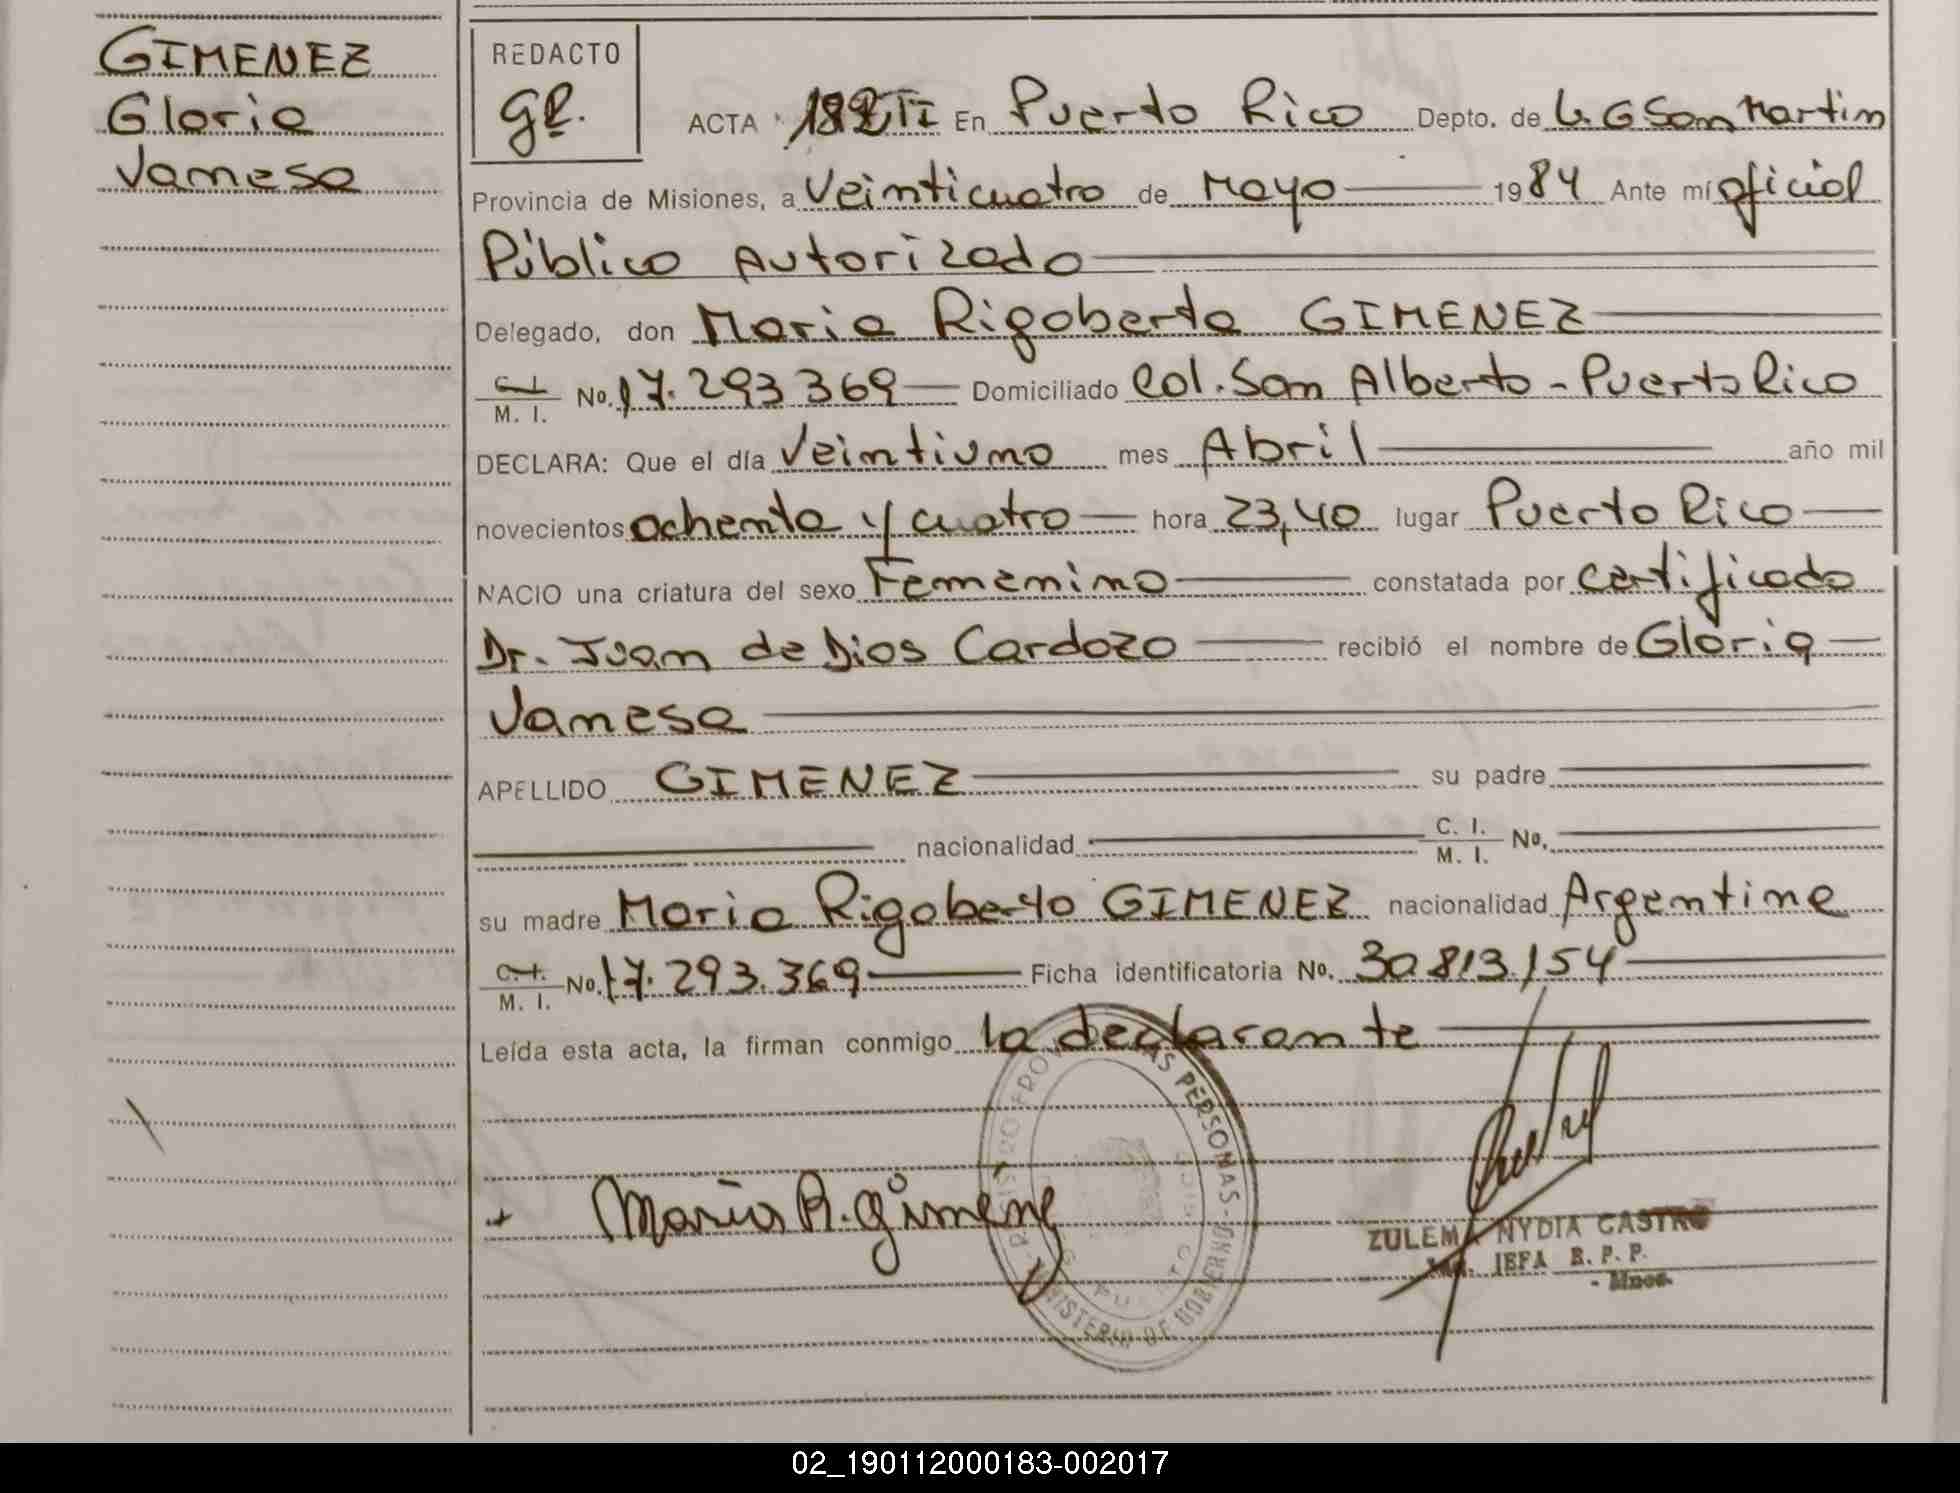 GIMENEZ
Gloria
Vanesa
REDACTO
ACTA 182 TI En Puerto Rico Depto. de L. G San Martin
Provincia de Misiones, a Veinticuatro de Mayo 1984 Ante mí oficial
Público Autorizado
Delegado, don Maria Rigoberta GIMENEZ
C. I. / M. I. No. 17.293369 Domiciliado Col. San Alberto - Puerto Rico
DECLARA: Que el día Veintiuno mes Abril año mil
novecientos ochenta y cuatro hora 23,40 lugar Puerto Rico
NACIO una criatura del sexo Femenino constatada por certificado
Dr. Juan de Dios Cardozo recibió el nombre de Gloria
Vanesa
APELLIDO GIMENEZ su padre
nacionalidad C. I. / M. I. No.
su madre Maria Rigoberto GIMENEZ nacionalidad Argentina
C. I. / M. I. No. 17.293.369 Ficha identificatoria No. 30.813.154
Leída esta acta, la firman conmigo la declarante
Maria R. gimenez
AS PERSONAS - MINISTERIO DE GOBIERNO
ZULEMA NYDIA CASTRO
JEFA R. P. P.
- Mnes.
02_190112000183-002017